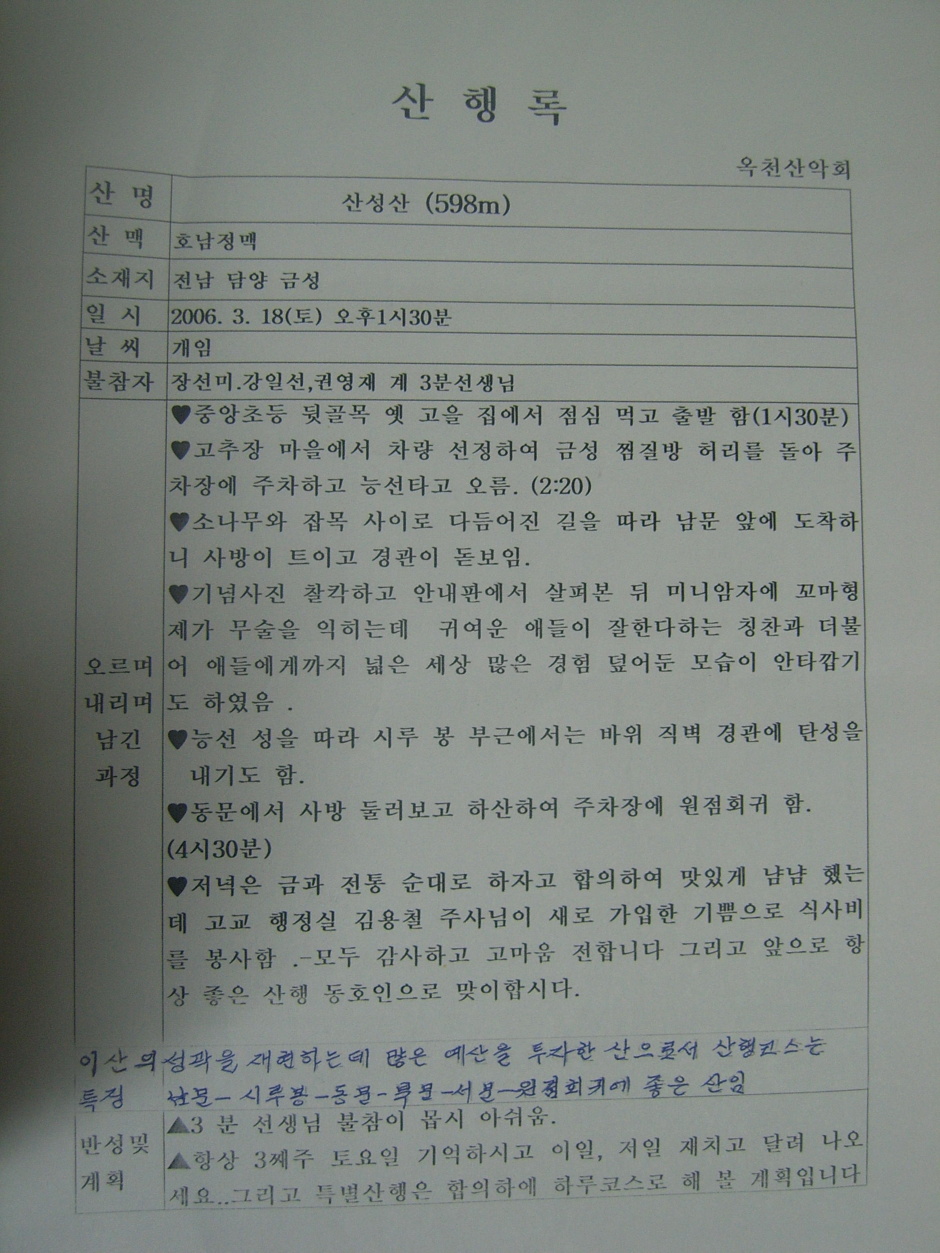 산 행 록
옥천산악회
산 명 산성산 (598m)
산 맥 호남정맥
소재지 전남 담양 금성
일 시 2006. 3. 18(토) 오후1시30분
날 씨 개임
불참자 장선미.강일선,권영재 계 3분선생님
♥중앙초등 뒷골목 옛 고을 집에서 점심 먹고 출발 함(1시30분)
♥고추장 마을에서 차량 선정하여 금성 찜질방 허리를 돌아 주
차장에 주차하고 능선타고 오름. (2:20)
♥소나무와 잡목 사이로 다듬어진 길을 따라 남문 앞에 도착하
니 사방이 트이고 경관이 돋보임.
♥기념사진 찰칵하고 안내판에서 살펴본 뒤 미니암자에 꼬마형
제가 무술을 익히는데 귀여운 애들이 잘한다하는 칭찬과 더불
오르며 어 애들에게까지 넓은 세상 많은 경험 덮어둔 모습이 안타깝기
내리며 도 하였음 .
남긴 ♥능선 성을 따라 시루 봉 부근에서는 바위 직벽 경관에 탄성을
과정 내기도 함.
♥동문에서 사방 둘러보고 하산하여 주차장에 원점회귀 함.
(4시30분)
♥저녁은 금과 전통 순대로 하자고 합의하여 맛있게 냠냠 했는
데 고교 행정실 김용철 주사님이 새로 가입한 기쁨으로 식사비
를 봉사함 .-모두 감사하고 고마움 전합니다 그리고 앞으로 항
상 좋은 산행 동호인으로 맞이합시다.
이산의 성곽을 재현하는데 많은 예산을 투자한 산으로서 산행코스는
특징 남문-시루봉-동문-북문-서문-원점회귀에 좋은 산임
▲3 분 선생님 불참이 몹시 아쉬움.
반성및 ▲항상 3째주 토요일 기억하시고 이일, 저일 재치고 달려 나오
계획 세요..그리고 특별산행은 합의하에 하루코스로 해 볼 계획입니다